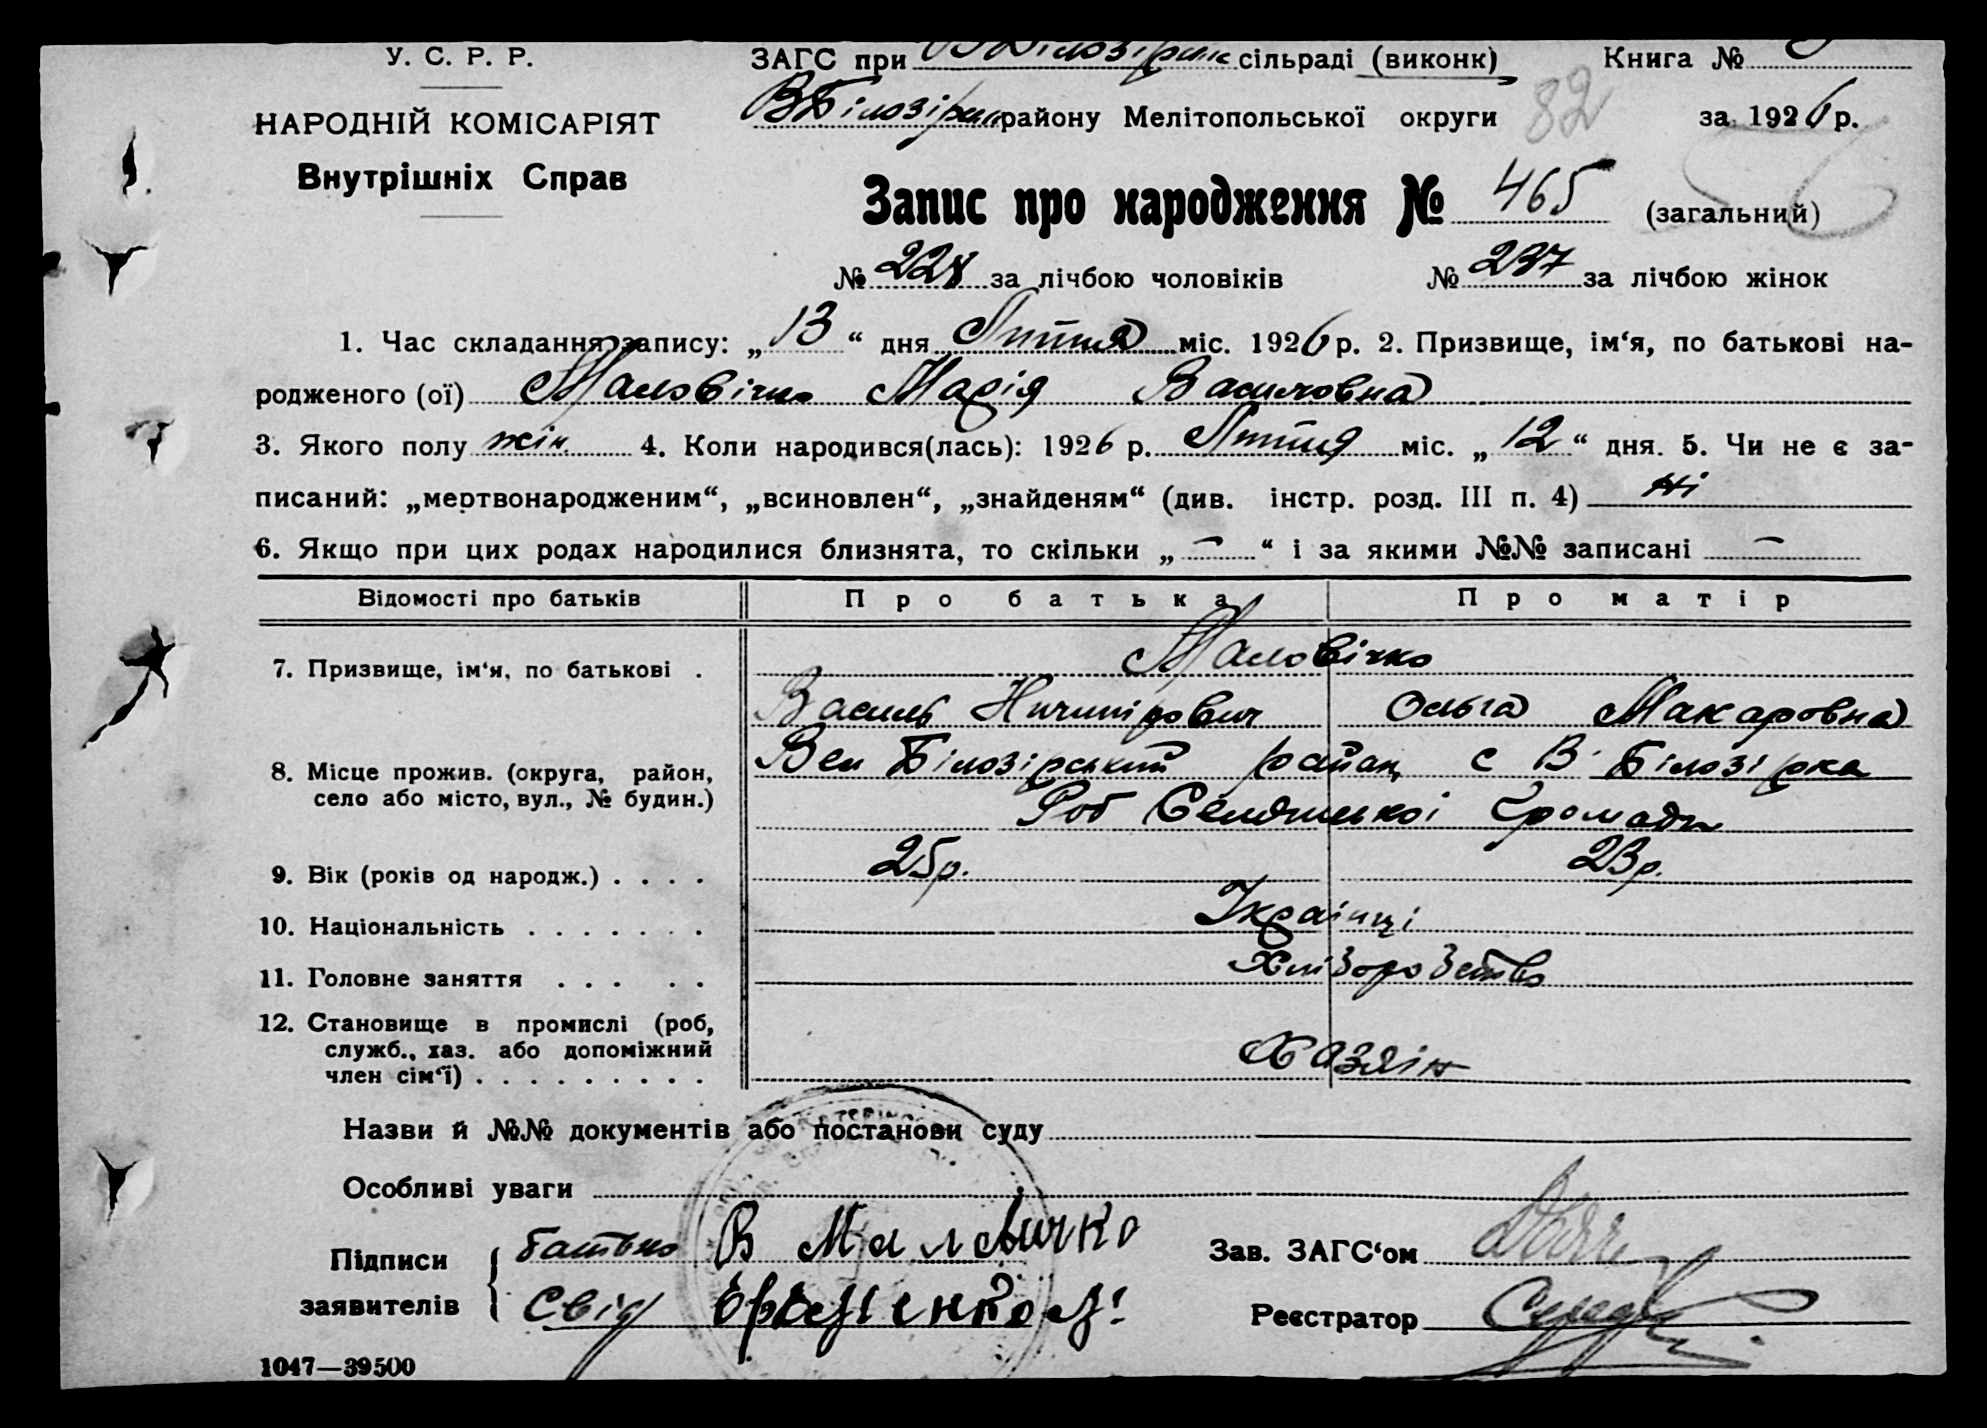 У. С. Р. Р.
НАРОДНІЙ КОМІСАРІЯТ
Внутрішніх Справ
ЗАГС при В Білозірск сільраді (виконк) Книга №
ВБілозірск району Мелітопольської округи 82 за 1926 р.
Запис про народження № 465 (загальний)
№ 228 за лічбою чоловіків № 237 за лічбою жінок
1. Час складання запису: „13“ дня Липня міс. 1926 р. 2. Призвище, ім‘я, по батькові на-
родженого (ої) Маловічко Марія Василовна
3. Якого полу жін. 4. Коли народився(лась): 1926 р. Липня міс. „12“ дня. 5. Чи не є за-
писаний: „мертвонародженим“, „всиновлен“, „знайденям“ (див. інстр. розд. III п. 4) ні
6. Якщо при цих родах народилися близнята, то скільки „—“ і за якими №№ записані —
Відомості про батьків Про батька Про матір
7. Призвище, ім‘я, по батькові . Маловічко
Василь Ничипірович Ольга Макаровна
8. Місце прожив. (округа, район, село або місто, вул., № будин.) Вел Білозірський район с В. Білозірка
Роб Селянської Громади
9. Вік (років од народж.) . . . . 25р. 23р.
10. Національність . . . . . . . Українці
11. Головне заняття . . . . . Хліборобство
12. Становище в промислі (роб,
служб., хаз. або допоміжний
член сім‘ї) . . . . . . . . . Хазяін
Назви й №№ документів або постанови суду
Особливі уваги
Підписи заявителів { батько В Маловичко Зав. ЗАГС‘ом
Свід Реєстратор
1047—39500